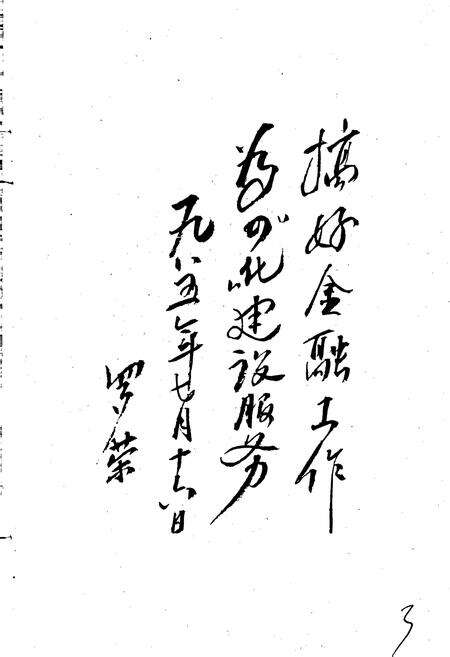 搞好金融工作
为四化建设服务
一九八五年七月十六日
罗荣
3